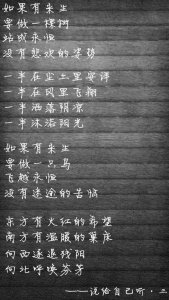 如果有来生
要做一棵树
站成永恒
没有悲欢的姿势
一半在尘土里安详
一半在风里飞翔
一半洒落阴凉
一半沐浴阳光
如果有来生
要做一只鸟
飞越永恒
没有迷途的苦恼
东方有火红的希望
南方有温暖的巢床
向西逐退残阳
向北唤醒芬芳
——说给自己听·三